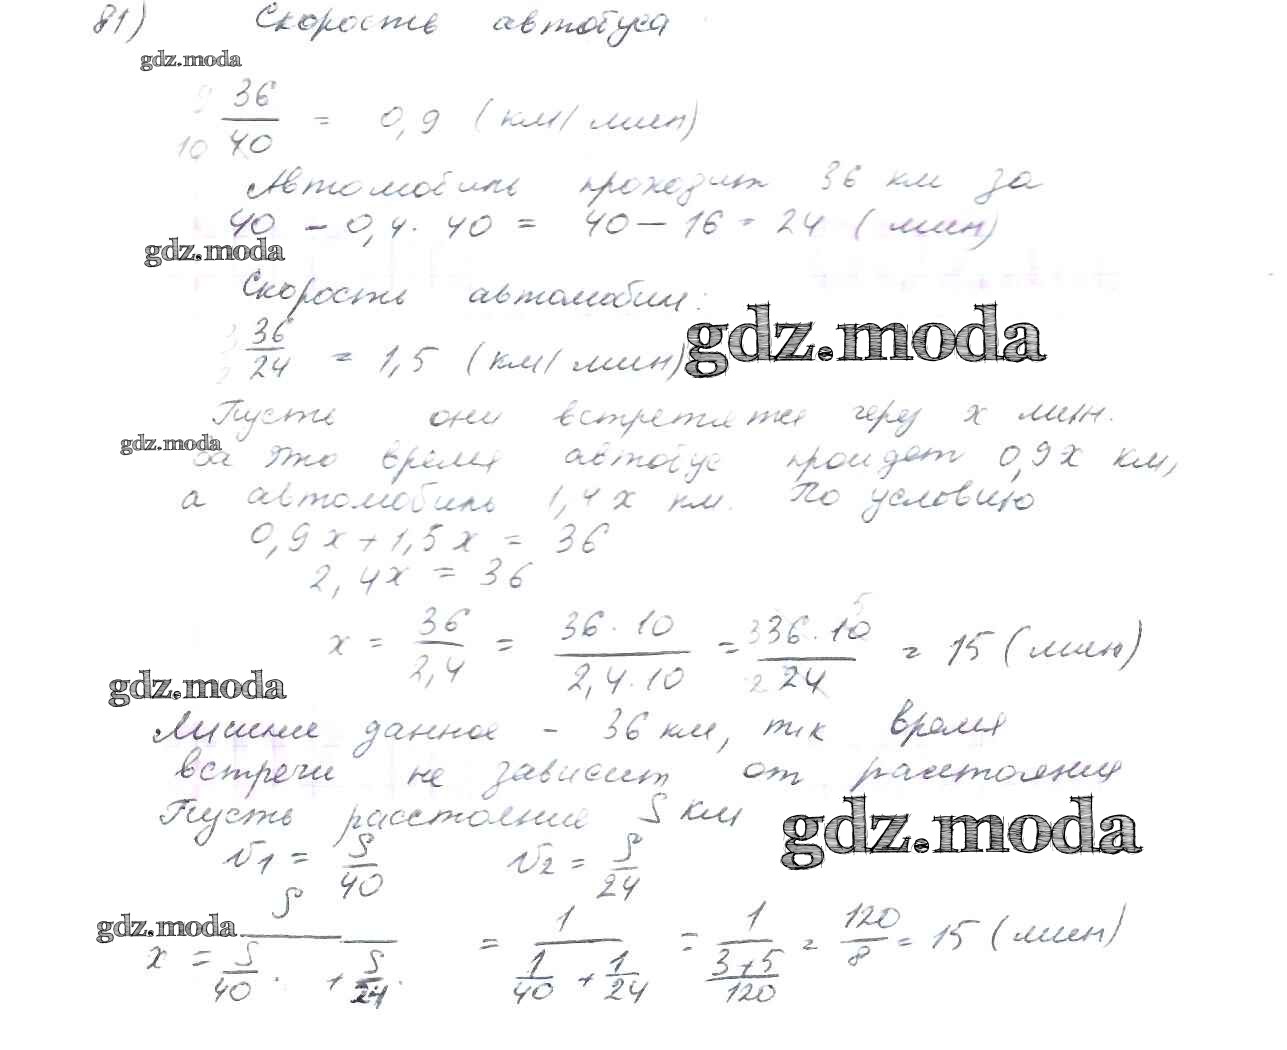 81) Скорость автобуса
gdz.moda
9 36/10 40 = 0,9 (км/мин)
Автомобиль проходит 36 км за
40 - 0,4 · 40 = 40 - 16 = 24 (мин)
gdz.moda
Скорость автомобил:
gdz.moda
3 36/2 24 = 1,5 (км/мин)
Пусть они встретятся через x мин.
gdz.moda
За это время автобус пройдет 0,9x км,
а автомобиль 1,4x км. По условию
0,9x + 1,5x = 36
2,4x = 36
x = 36/2,4 = 36 · 10/2,4 · 10 = 3 36 · 10 5/2 24 = 15 (мин)
gdz.moda
Лишние данное - 36 км, т к время
встречи не зависит от расстояния
Пусть расстояние S км
gdz.moda
v1 = S/40 v2 = S/24
gdz.moda
x = S/(S/40 + S/24) = 1/(1/40 + 1/24) = 1/((3+5)/120) = 120/8 = 15 (мин)